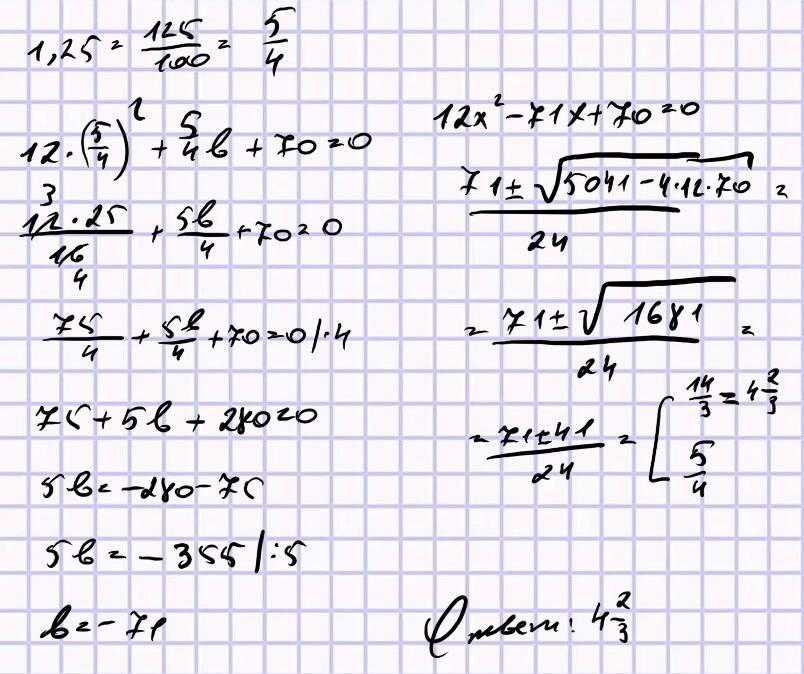 1,25 = 125/100 = 5/4
12·(5/4)² + 5/4 b + 70 = 0
3
12·25/16 + 5b/4 + 70 = 0
4
75/4 + 5b/4 + 70 = 0 |·4
75 + 5b + 280 = 0
5b = -280 - 75
5b = - 355 |:5
b = - 71
12x² - 71x + 70 = 0
71 ± √(5041 - 4·12·70) / 24 =
= 71 ± √1681 / 24 =
= 71 ± 41 / 24 = [ 14/3 = 4 2/3
5/4
Ответ: 4 2/3